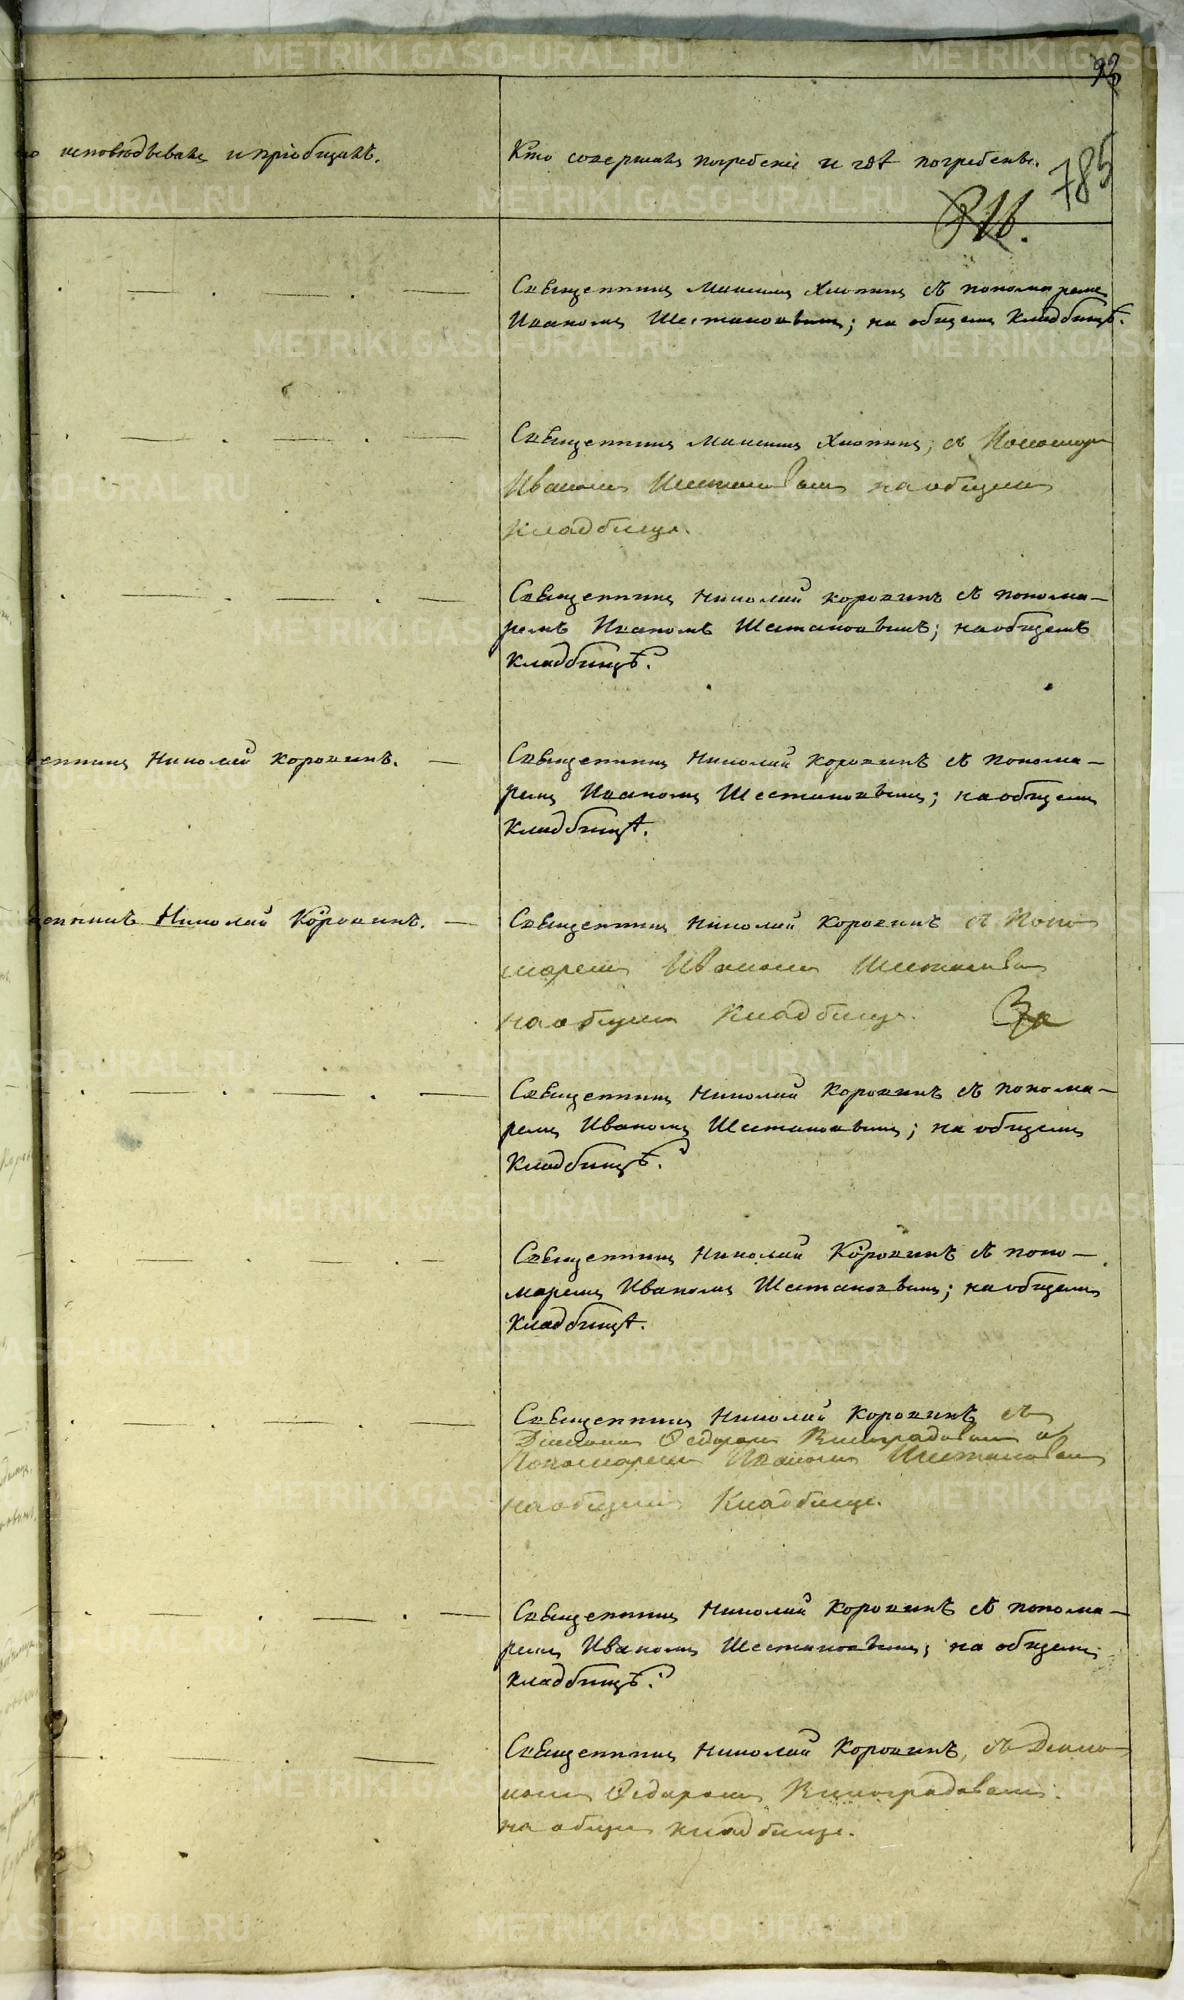 93
исповѣдывалъ и пріобщалъ.
Кто совершалъ погребеніе и гдѣ погребены.
785
Священникъ Максимъ Хлопинъ съ пономаремъ
Иваномъ Шестаковымъ; на общемъ Кладбищѣ.
Священникъ Максимъ Хлопинъ, съ Пономаремъ
Иваномъ Шестаковымъ на общемъ
кладбище.
Священникъ Николай Коровинъ съ понома-
ремъ Иваномъ Шестаковымъ; на общемъ
Кладбищѣ.
Николай Коровинъ. —
Священникъ Николай Коровинъ съ понома-
ремъ Иваномъ Шестаковымъ; на общемъ
Кладбищѣ.
Николай Коровинъ. —
Священникъ Николай Коровинъ съ Поно
маремъ Иваномъ Шестаковымъ
на общемъ Кладбище.
Священникъ Николай Коровинъ съ понома-
ремъ Иваномъ Шестаковымъ; на общемъ
Кладбищѣ.
Священникъ Николай Коровинъ съ поно-
маремъ Иваномъ Шестаковымъ; на общемъ
Кладбищѣ.
Священникъ Николай Коровинъ съ
Діакономъ Ѳедоромъ Виноградовымъ и
Пономаремъ Иваномъ Шестаковымъ
на общемъ Кладбище.
Священникъ Николай Коровинъ съ понома-
ремъ Иваномъ Шестаковымъ; на общемъ
кладбищѣ.
Священникъ Николай Коровинъ, съ Діако
номъ Ѳедоромъ Виноградовымъ.
на общемъ кладбище.
METRIKI.GASO-URAL.RU